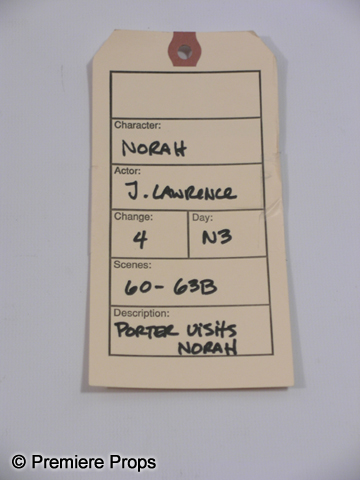 Character:
NORAH
Actor:
J. LAWRENCE
Change: Day:
4 N3
Scenes:
60-63B
Description:
PORTER VISITS
NORAH
© Premiere Props